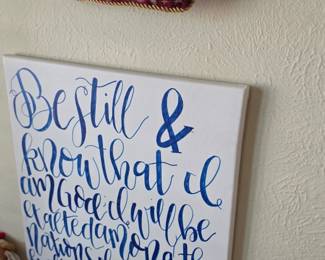 Be still &
know that I
am God; I will be
exalted among the
nations